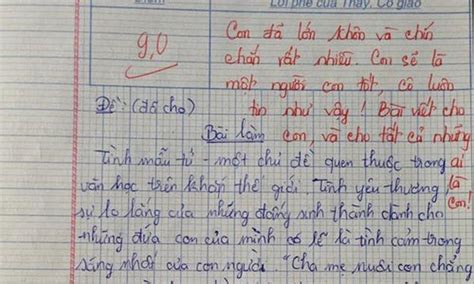 Điểm
Lời phê của Thầy, Cô giáo
9,0
Con đã lớn khôn và chín
chắn rất nhiều. Con sẽ là
một người con tốt, cô luôn
tin như vậy! Bài viết cho
con, và cho tất cả những
ai
là
con!
Đề: (đã cho)
Bài làm
Tình mẫu tử - một chủ đề quen thuộc trong
văn học trên khắp thế giới. Tình yêu thương,
sự lo lắng của những đấng sinh thành dành cho
những đứa con của mình có lẽ là tình cảm trong
sáng nhất của con người. "Cha mẹ nuôi con chẳng